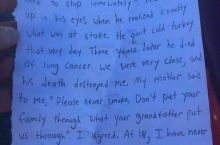 need to stop immediately." 
up in his eyes when he realized exactly
what was at stake. He quit cold-turkey
that very day. Three years later he died
of lung cancer. We were very close, and
his death destroyed me. My mother said
to me, "Please never smoke. Don't put your
family through what your grandfather put
us through." I agreed. At 18, I have never